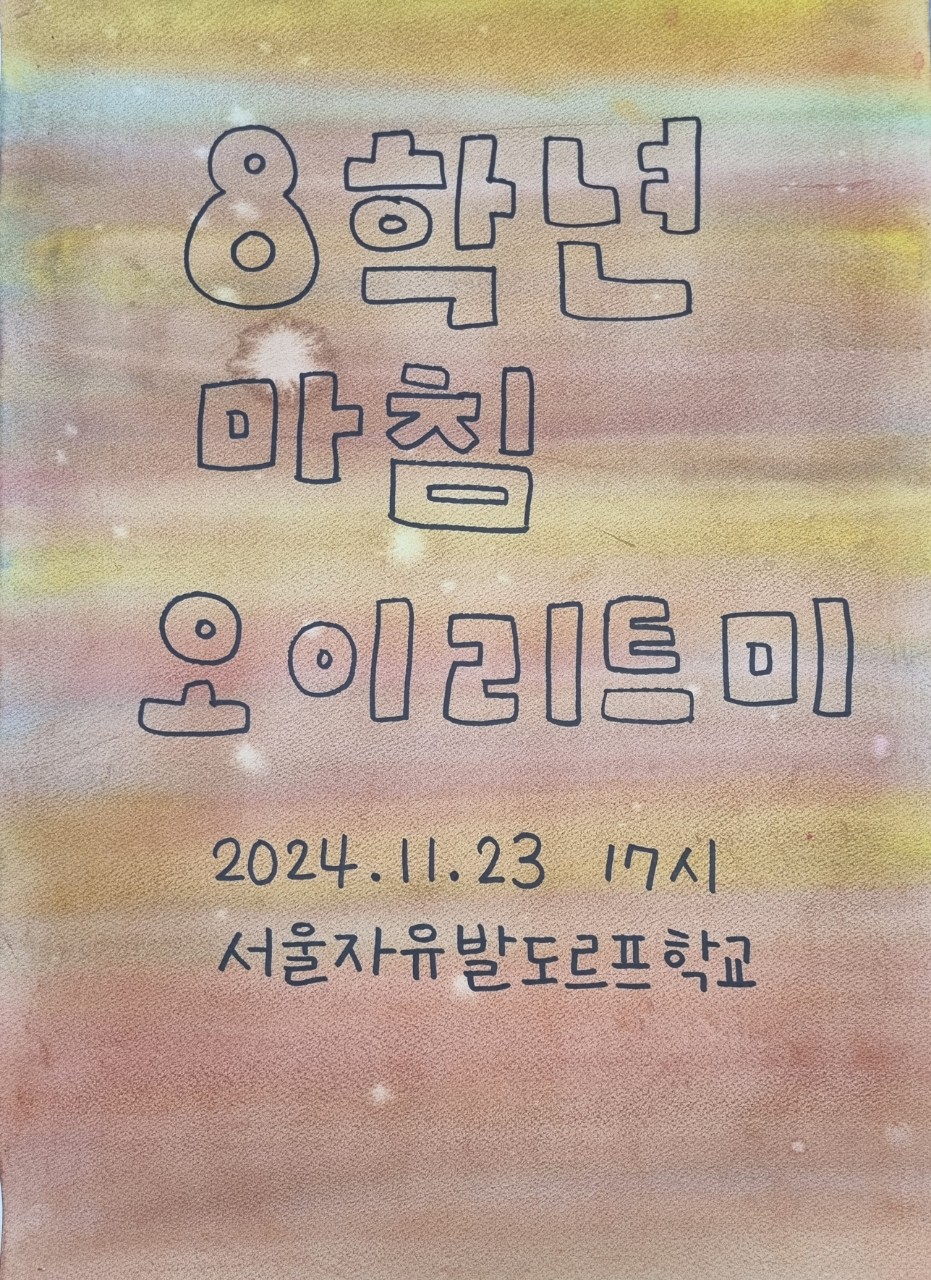 8학년
마침
오이리트미
2024.11.23 17시
서울자유발도르프학교